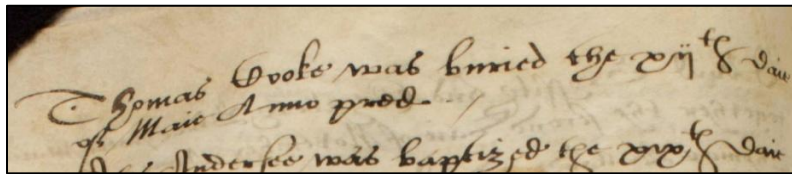 Thomas Cooke was buried the xijth daie
of Maie Anno pred
Andersee was baptized the xixth daie